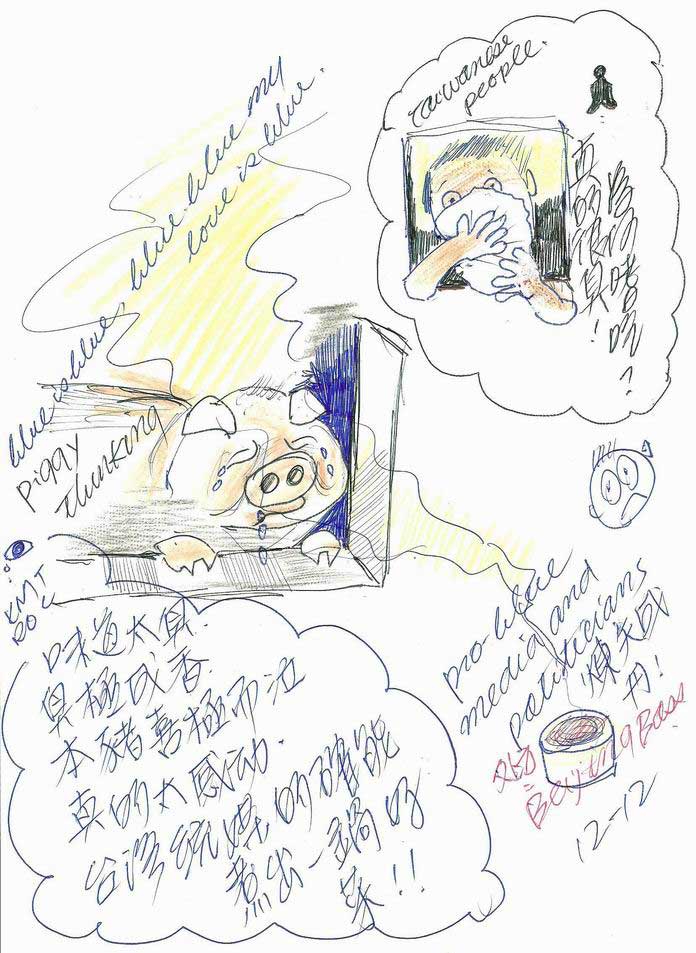 Taiwanese
people.
真的很臭!
blue blue my
love is blue.
blue is blue,
piggy
thinking
KMT
ROC
味道太臭.
臭極成香.
本豬喜極而泣
真的太感动.
台灣統媒的確能
煮出一鍋好
菜!!
pro-blue
media and
politicians
丹!
Beijing Boss
12-12